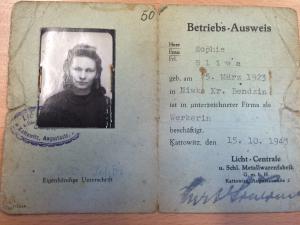 50
Betriebs-Ausweis
Herr
Frau
Frl.
Sophie
Sliwa
geb. am 5. März 1923
in Niwka Kr. Bendzin
ist in unterzeichneter Firma als
Werkerin
beschäftigt.
Kattowitz, den 15.10.1943
Licht-Centrale
u. Schl. Metallwarenfabrik
G. m. b. H.
Kattowitz,
Eigenhändige Unterschrift
Kattowitz, Auguststr.